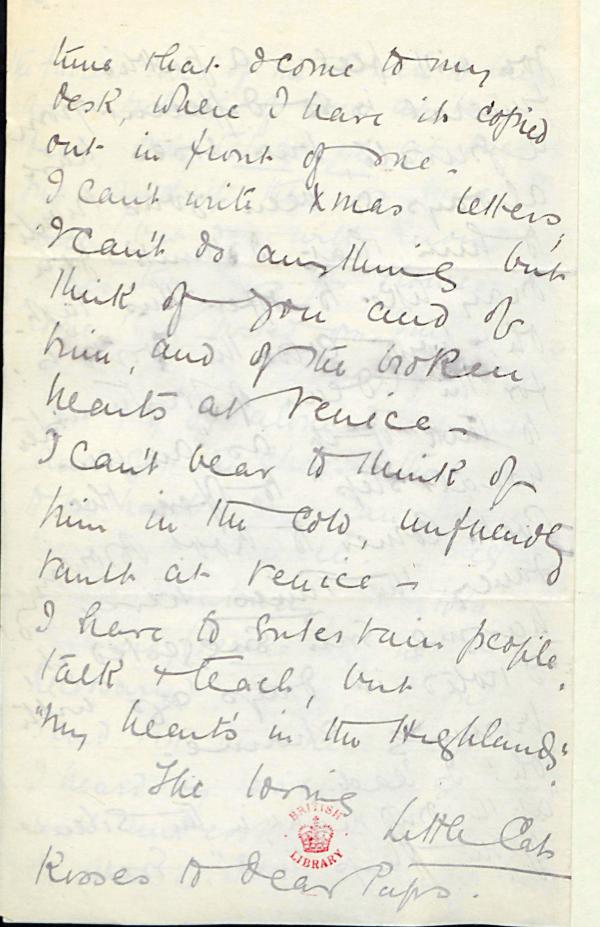 time that I come to my
desk, where I have it copied
out in front of me.
I can't write Xmas letters,
I can't do anything but
think of you and of
him, and of the broken
hearts at Venice –
I can't bear to think of
him in the cold, unfriendly
vault at Venice –
I have to entertain people,
talk & teach, but
"my heart's in the Highlands".
The loving
Little Cat
BRITISH
LIBRARY
Kisses to dear Paps.